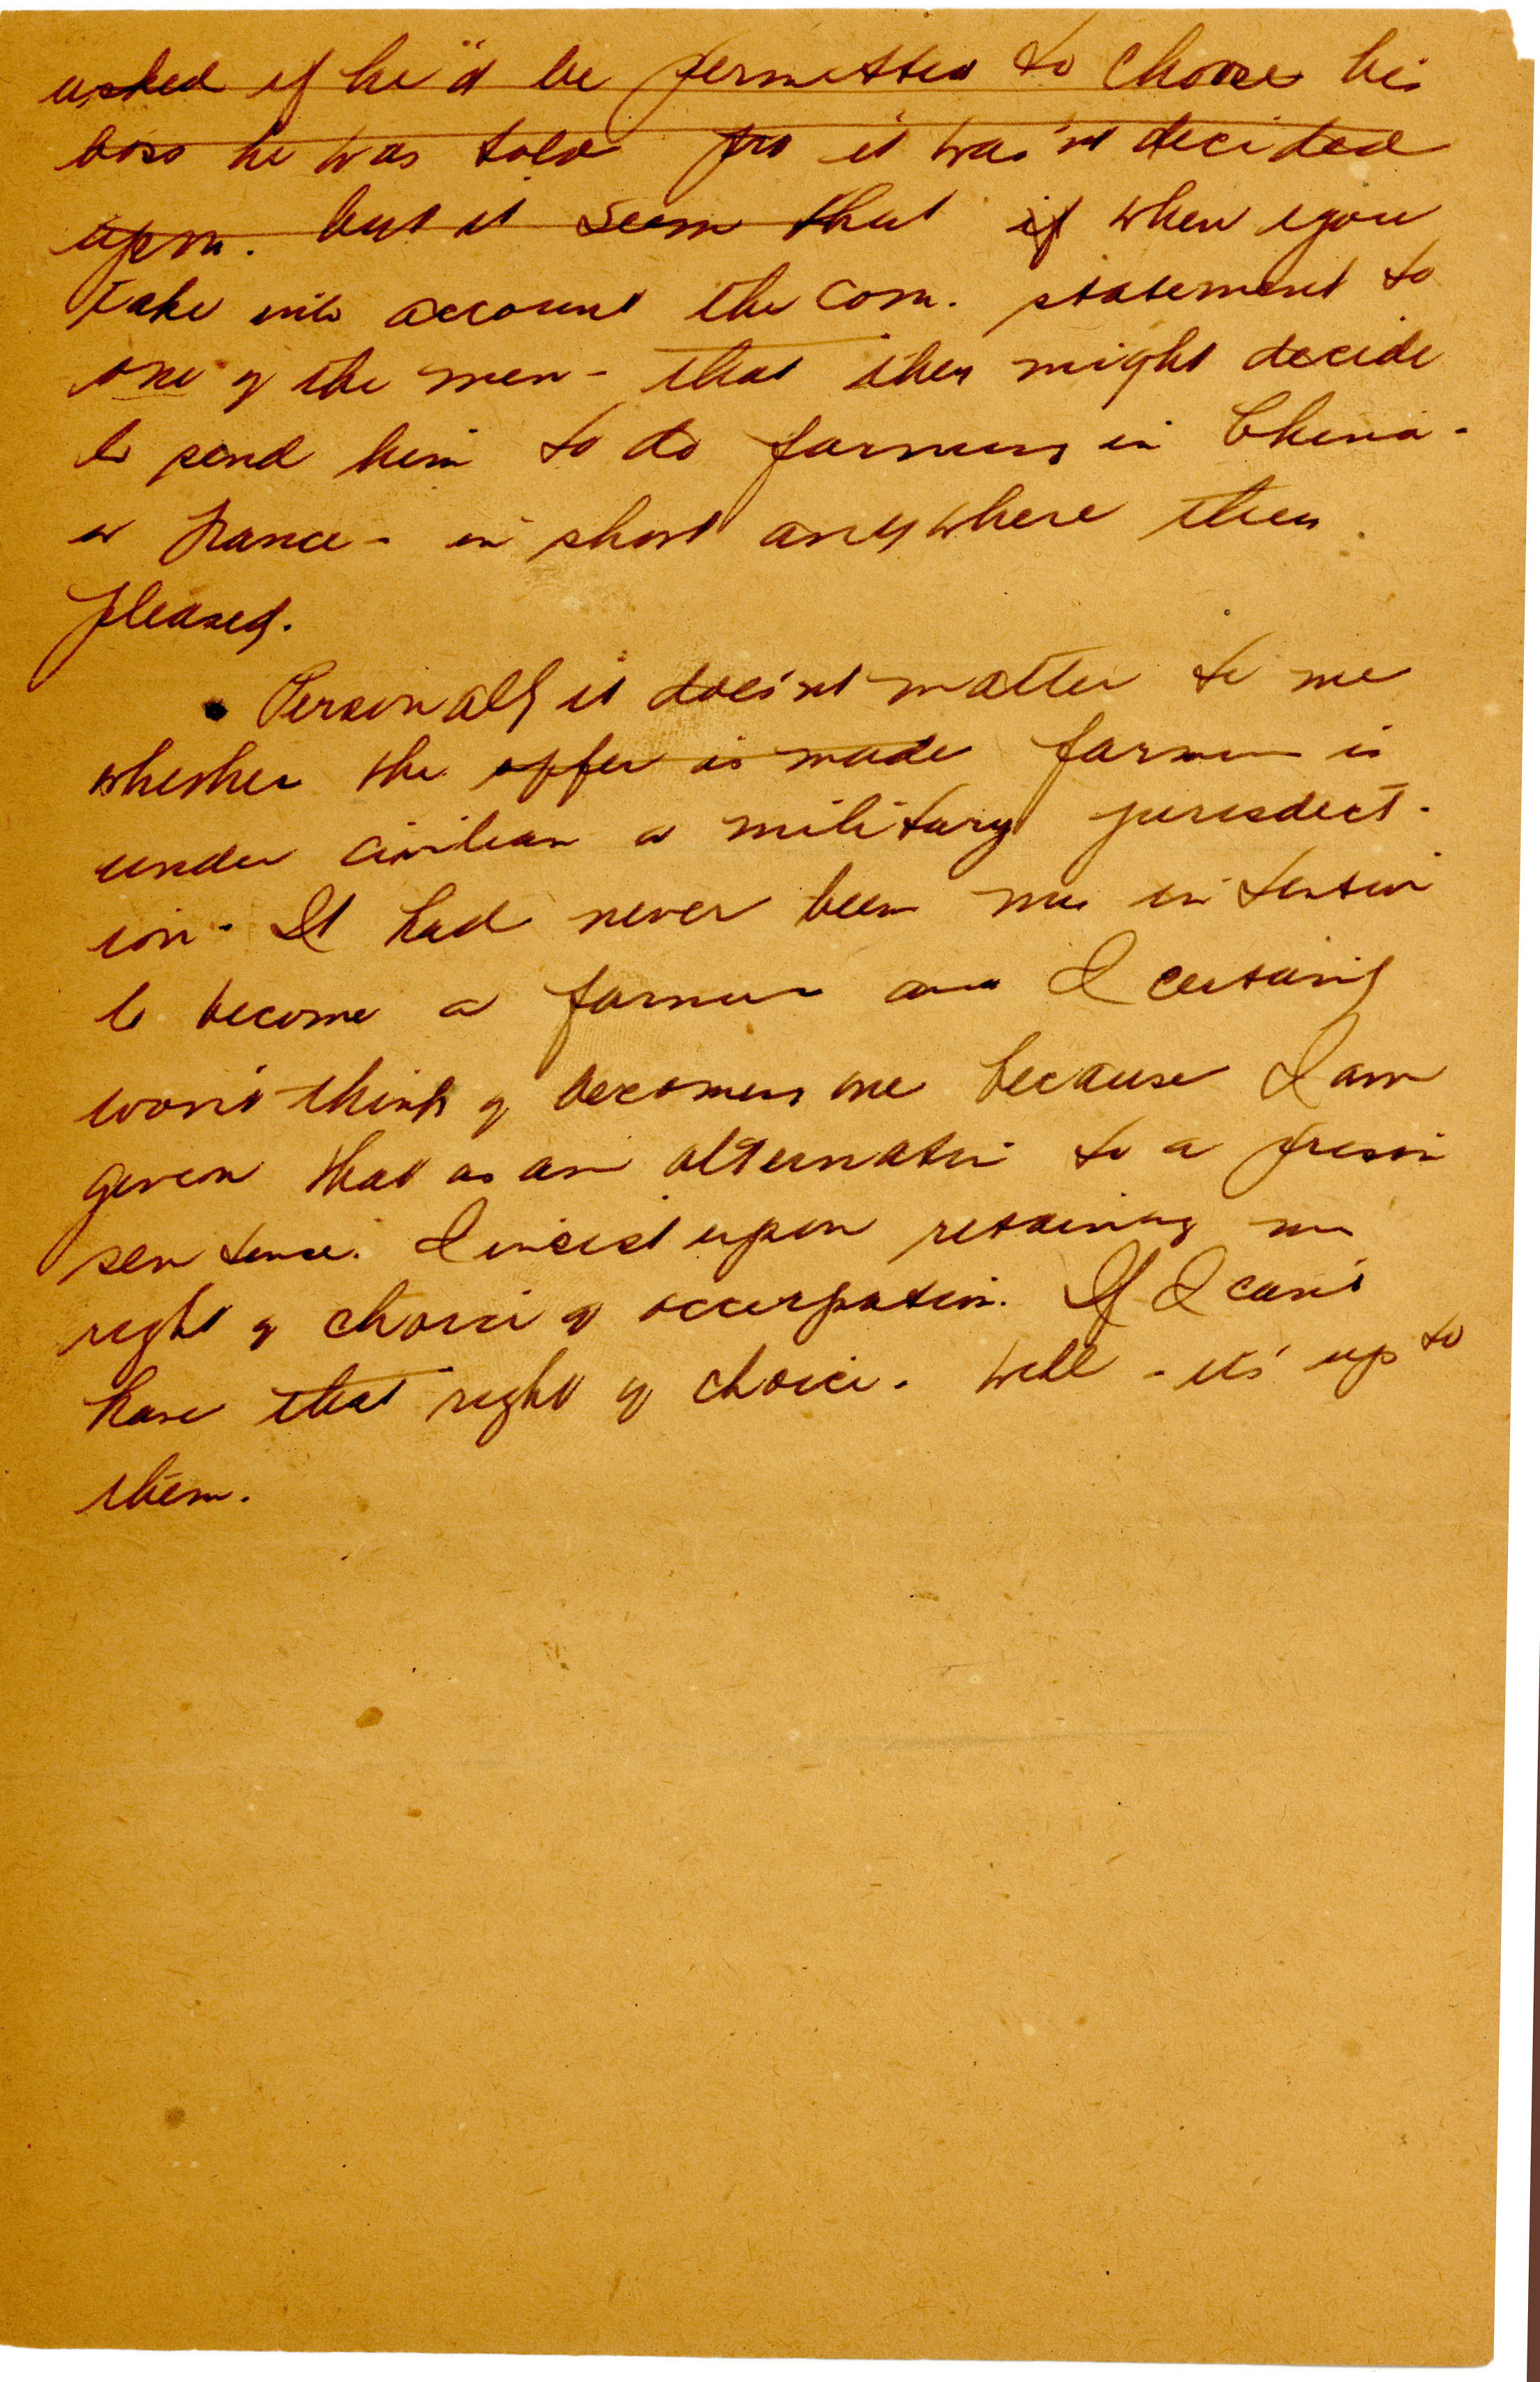 asked if he'd be permitted to choose his
boss he was told no it was'nt decided
upon. but it seem that if when you
take into account the Com. statement to
one of the men - that they might decide
to send him to do farming in China -
or France - in short anywhere they
pleased.
Personally it does'nt matter to me
whether the offer is made farmer is
under civilian or military jurisdict-
ion - It had never been my intention
to become a farmer and I certainly
won't think of becoming one because I am
given that as an alternative to a prison
sentence. I insist upon retaining my
right of choice of occupation. If I can't
have that right of choice - well - its' up to
them.